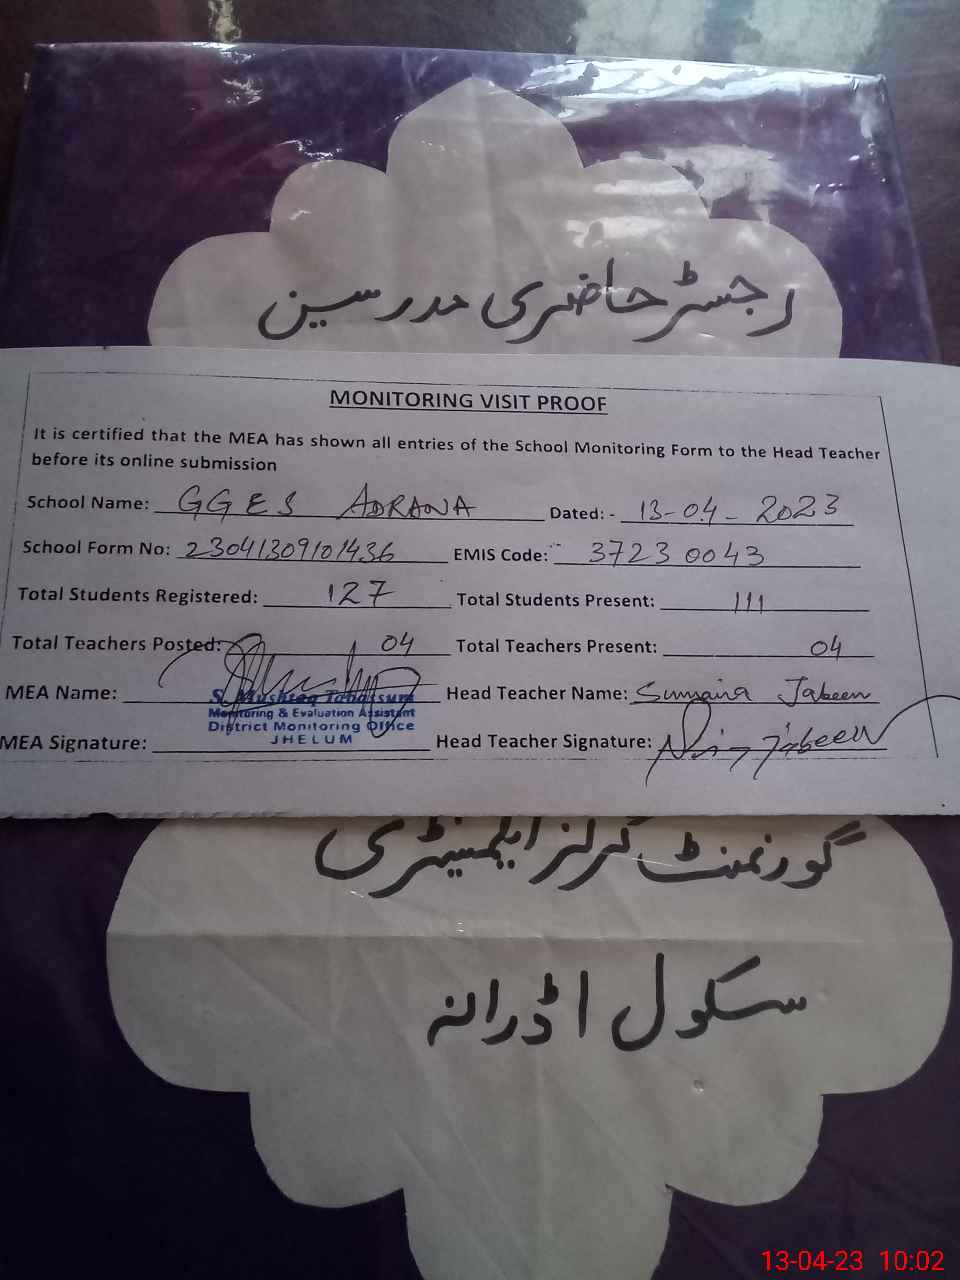 رجسٹر حاضری مدرسین
MONITORING VISIT PROOF
It is certified that the MEA has shown all entries of the School Monitoring Form to the Head Teacher
before its online submission
School Name: GGES ADRANA Dated: - 13-04-2023
School Form No: 23041309101436 EMIS Code: 37230043
Total Students Registered: 127 Total Students Present: 111
Total Teachers Posted: 04 Total Teachers Present: 04
MEA Name: S. Mushtaq Tabassum Head Teacher Name: Sumaira Jabeen
Monitoring & Evaluation Assistant
District Monitoring Office
MEA Signature: JHELUM Head Teacher Signature: Jabeen
گورنمنٹ گرلز ایلیمنٹری
سکول اڈرانہ
13-04-23 10:02